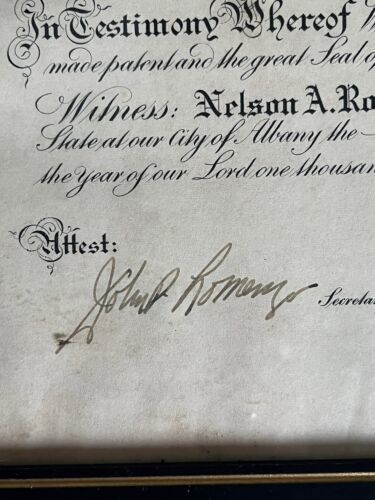 In Testimony Whereof W
made patent and the great Seal of
Witness: Nelson A. Ro
State at our City of Albany the
the Year of our Lord one thousan
Attest:
John P. Lomenzo
Secreta